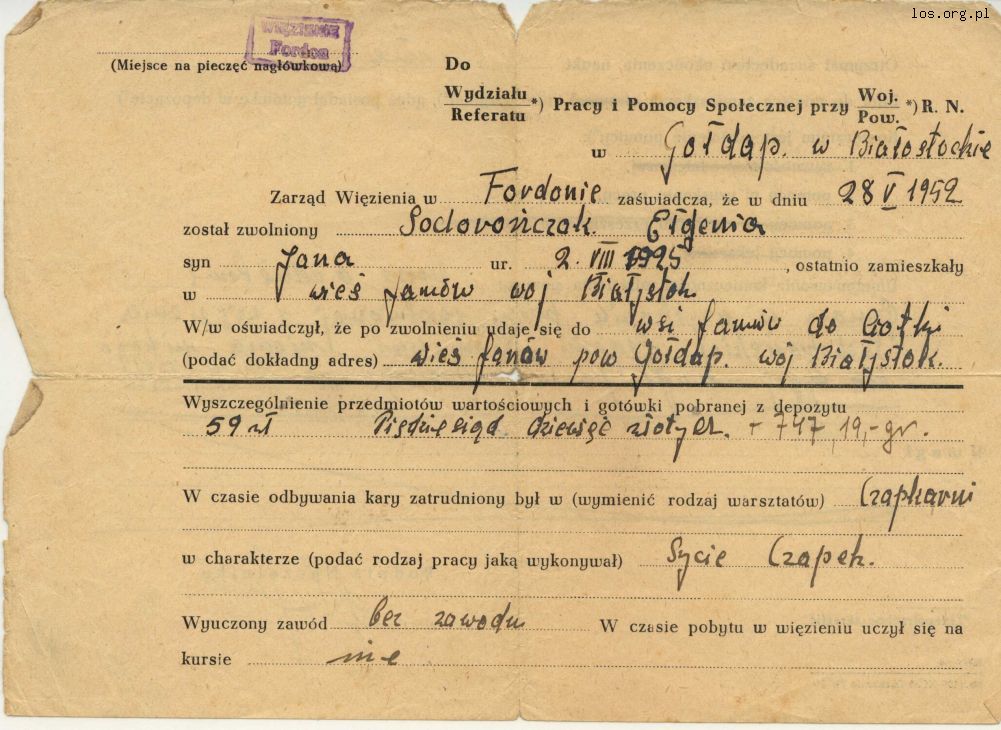 los.org.pl
WIĘZIENIE
Fordon
(Miejsce na pieczęć nagłówkową)
Do
Wydziału
Referatu *) Pracy i Pomocy Społecznej przy Woj. Pow. *) R. N.
w Gołdap. w Białostockie
Zarząd Więzienia w Fordonie zaświadcza, że w dniu 28 V 1952
został zwolniony Ełgenia
syn Jana ur. 2. VIII 1925, ostatnio zamieszkały
w wieś Janów woj Białystok
W/w oświadczył, że po zwolnieniu udaje się do wsi Janów do
(podać dokładny adres) wieś Janów pow Gołdap. wój Białystok.
Wyszczególnienie przedmiotów wartościowych i gotówki pobranej z depozytu
59 zł Piędziesiąd dziewięć złotych. + 747,19,-gr.
W czasie odbywania kary zatrudniony był w (wymienić rodzaj warsztatów) Czapkarni
w charakterze (podać rodzaj pracy jaką wykonywał) Sycie Czapek.
Wyuczony zawód bez zawodu W czasie pobytu w więzieniu uczył się na
kursie nie